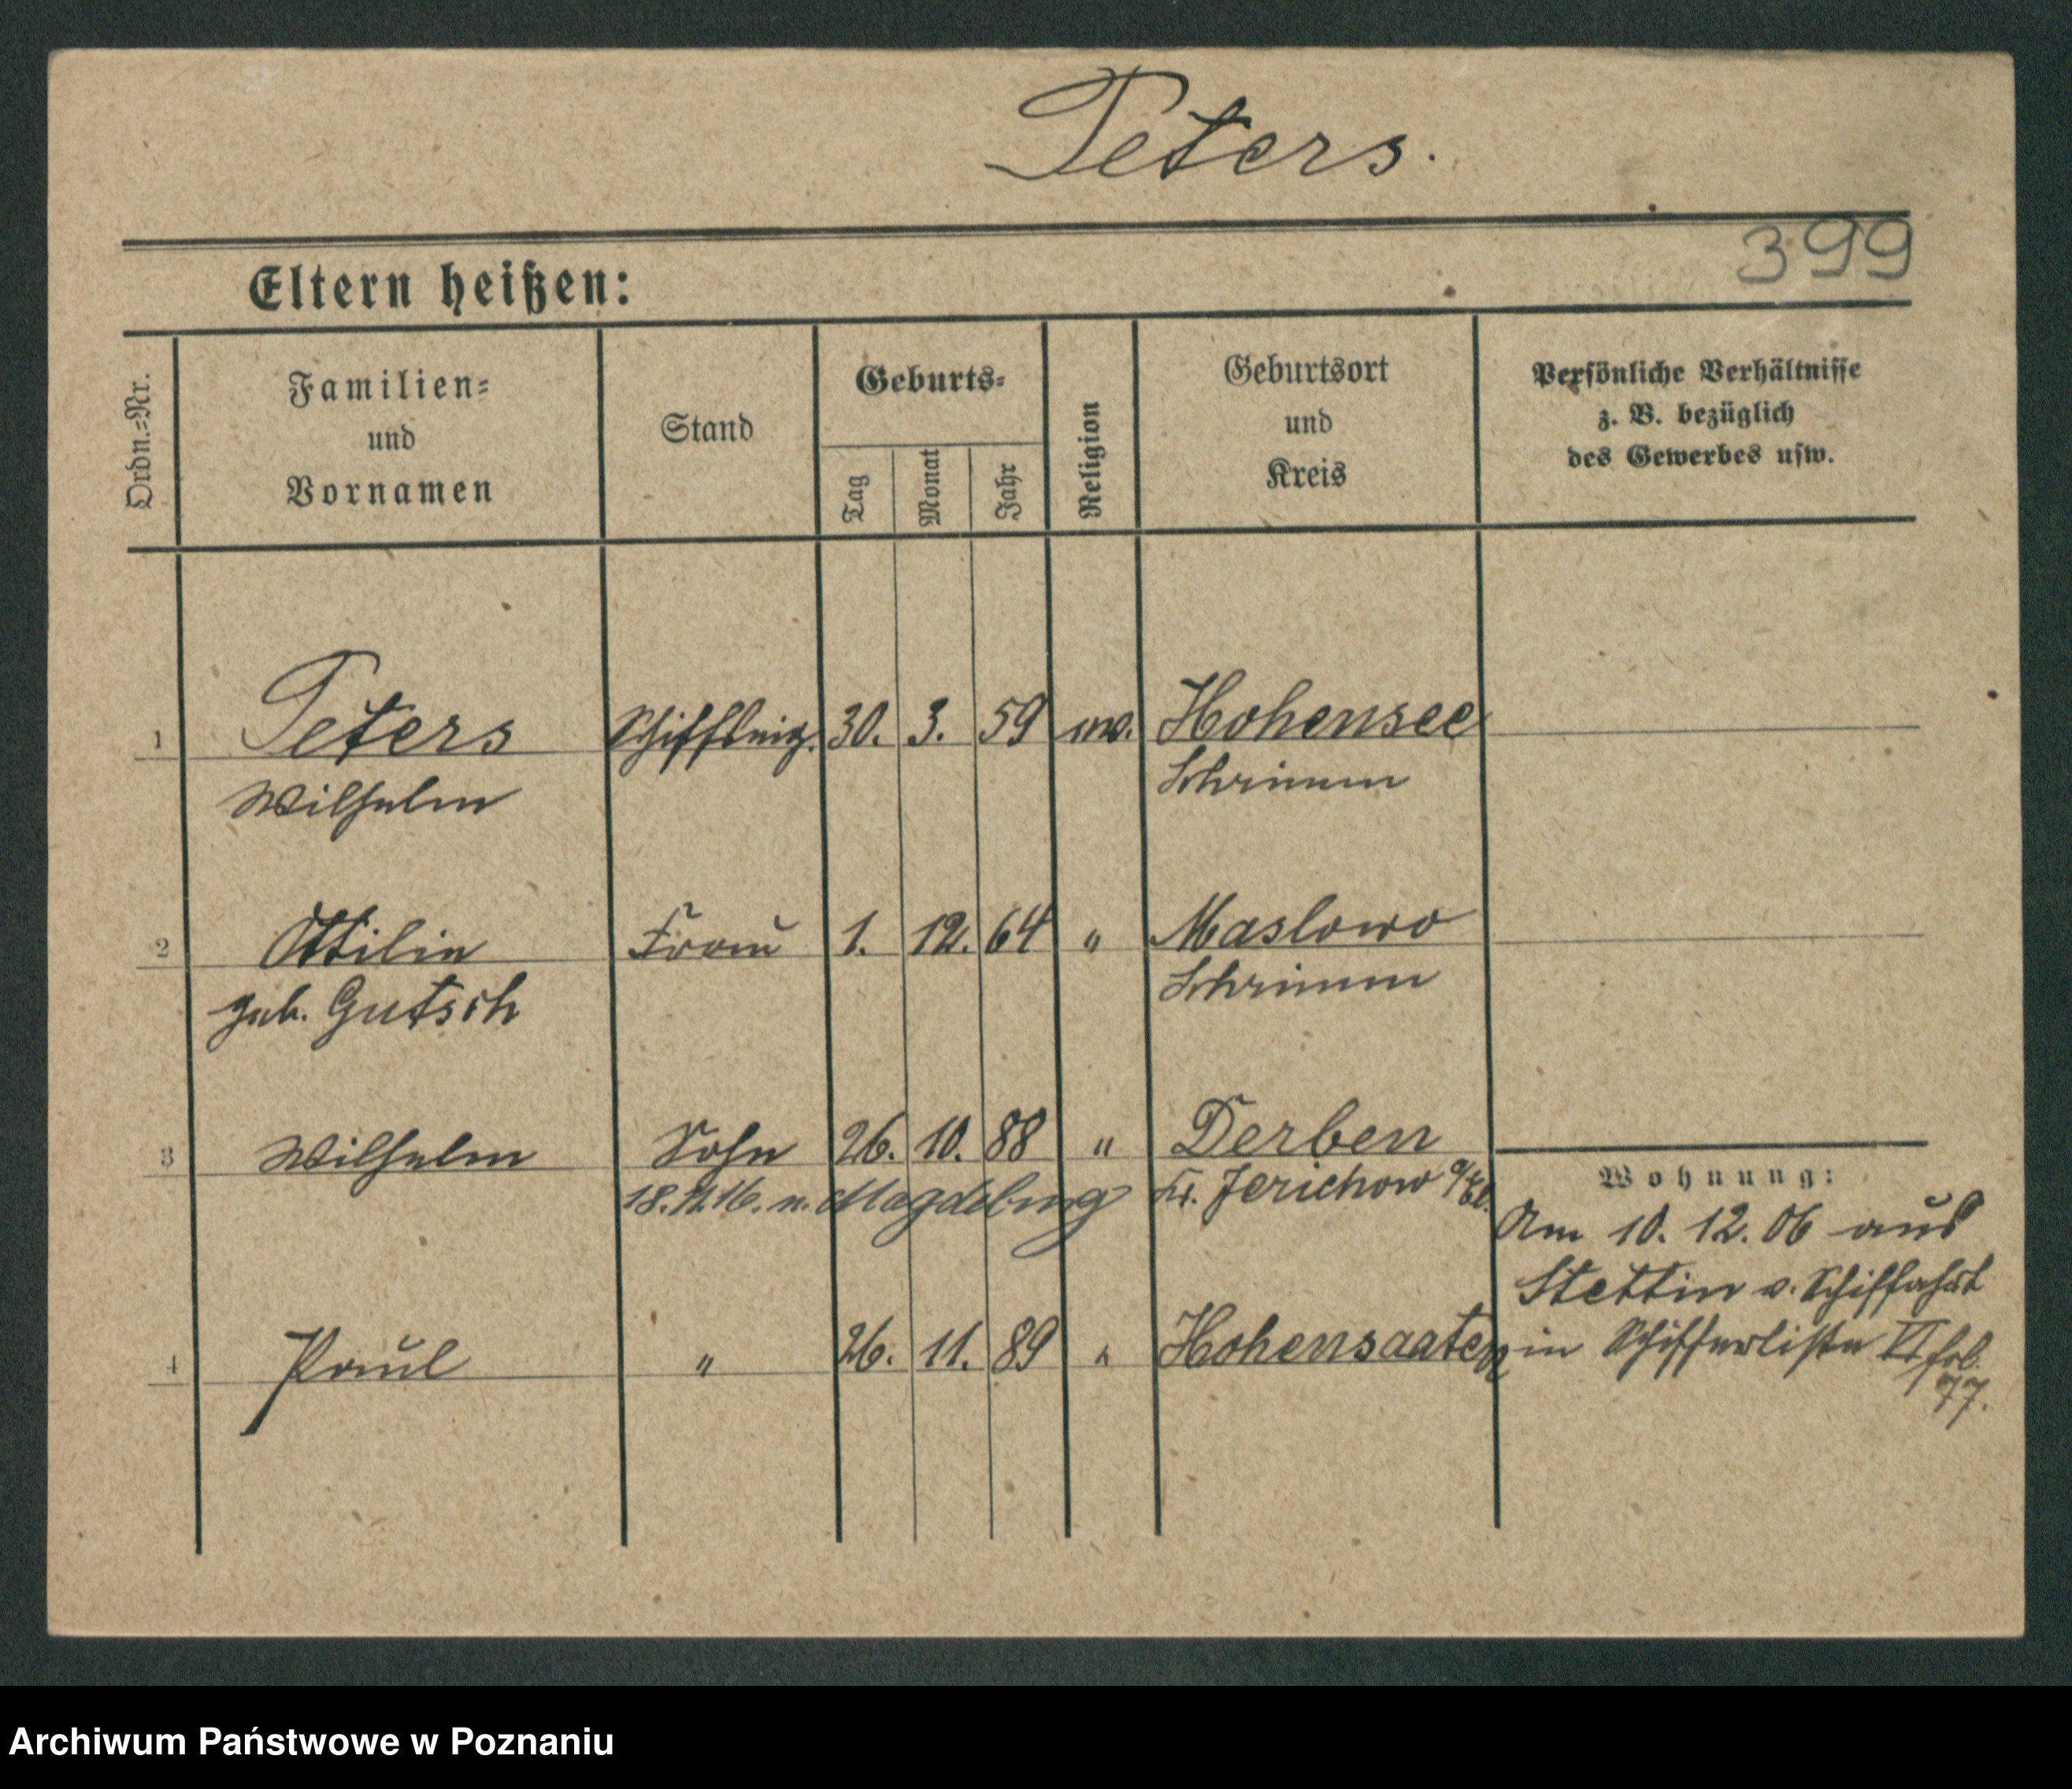 Peters.
399
Eltern heißen:
Ordn.=Nr.
Familien=
und
Vornamen
Stand
Geburts=
Tag
Monat
Jahr
Religion
Geburtsort
und
Kreis
Persönliche Verhältnisse
z. B. bezüglich
des Gewerbes usw.
1 Peters Schiffseig. 30. 3. 59 ev. Hohensee
Wilhelm Schrimm
2 Ottilie Frau 1. 12. 64 " Maslowo
geb. Gutsch Schrimm
3 Wilhelm Sohn 26. 10. 88 " Derben
18. 11. 16. n. Magdeburg Kr. Jerichow a/El.
4 Paul " 26. 11. 89 " Hohensaaten
Wohnung:
Am 10. 12. 06 aus
Stettin v. Schiffahrt
in Schifferliste VI fol.
77.
Archiwum Państwowe w Poznaniu